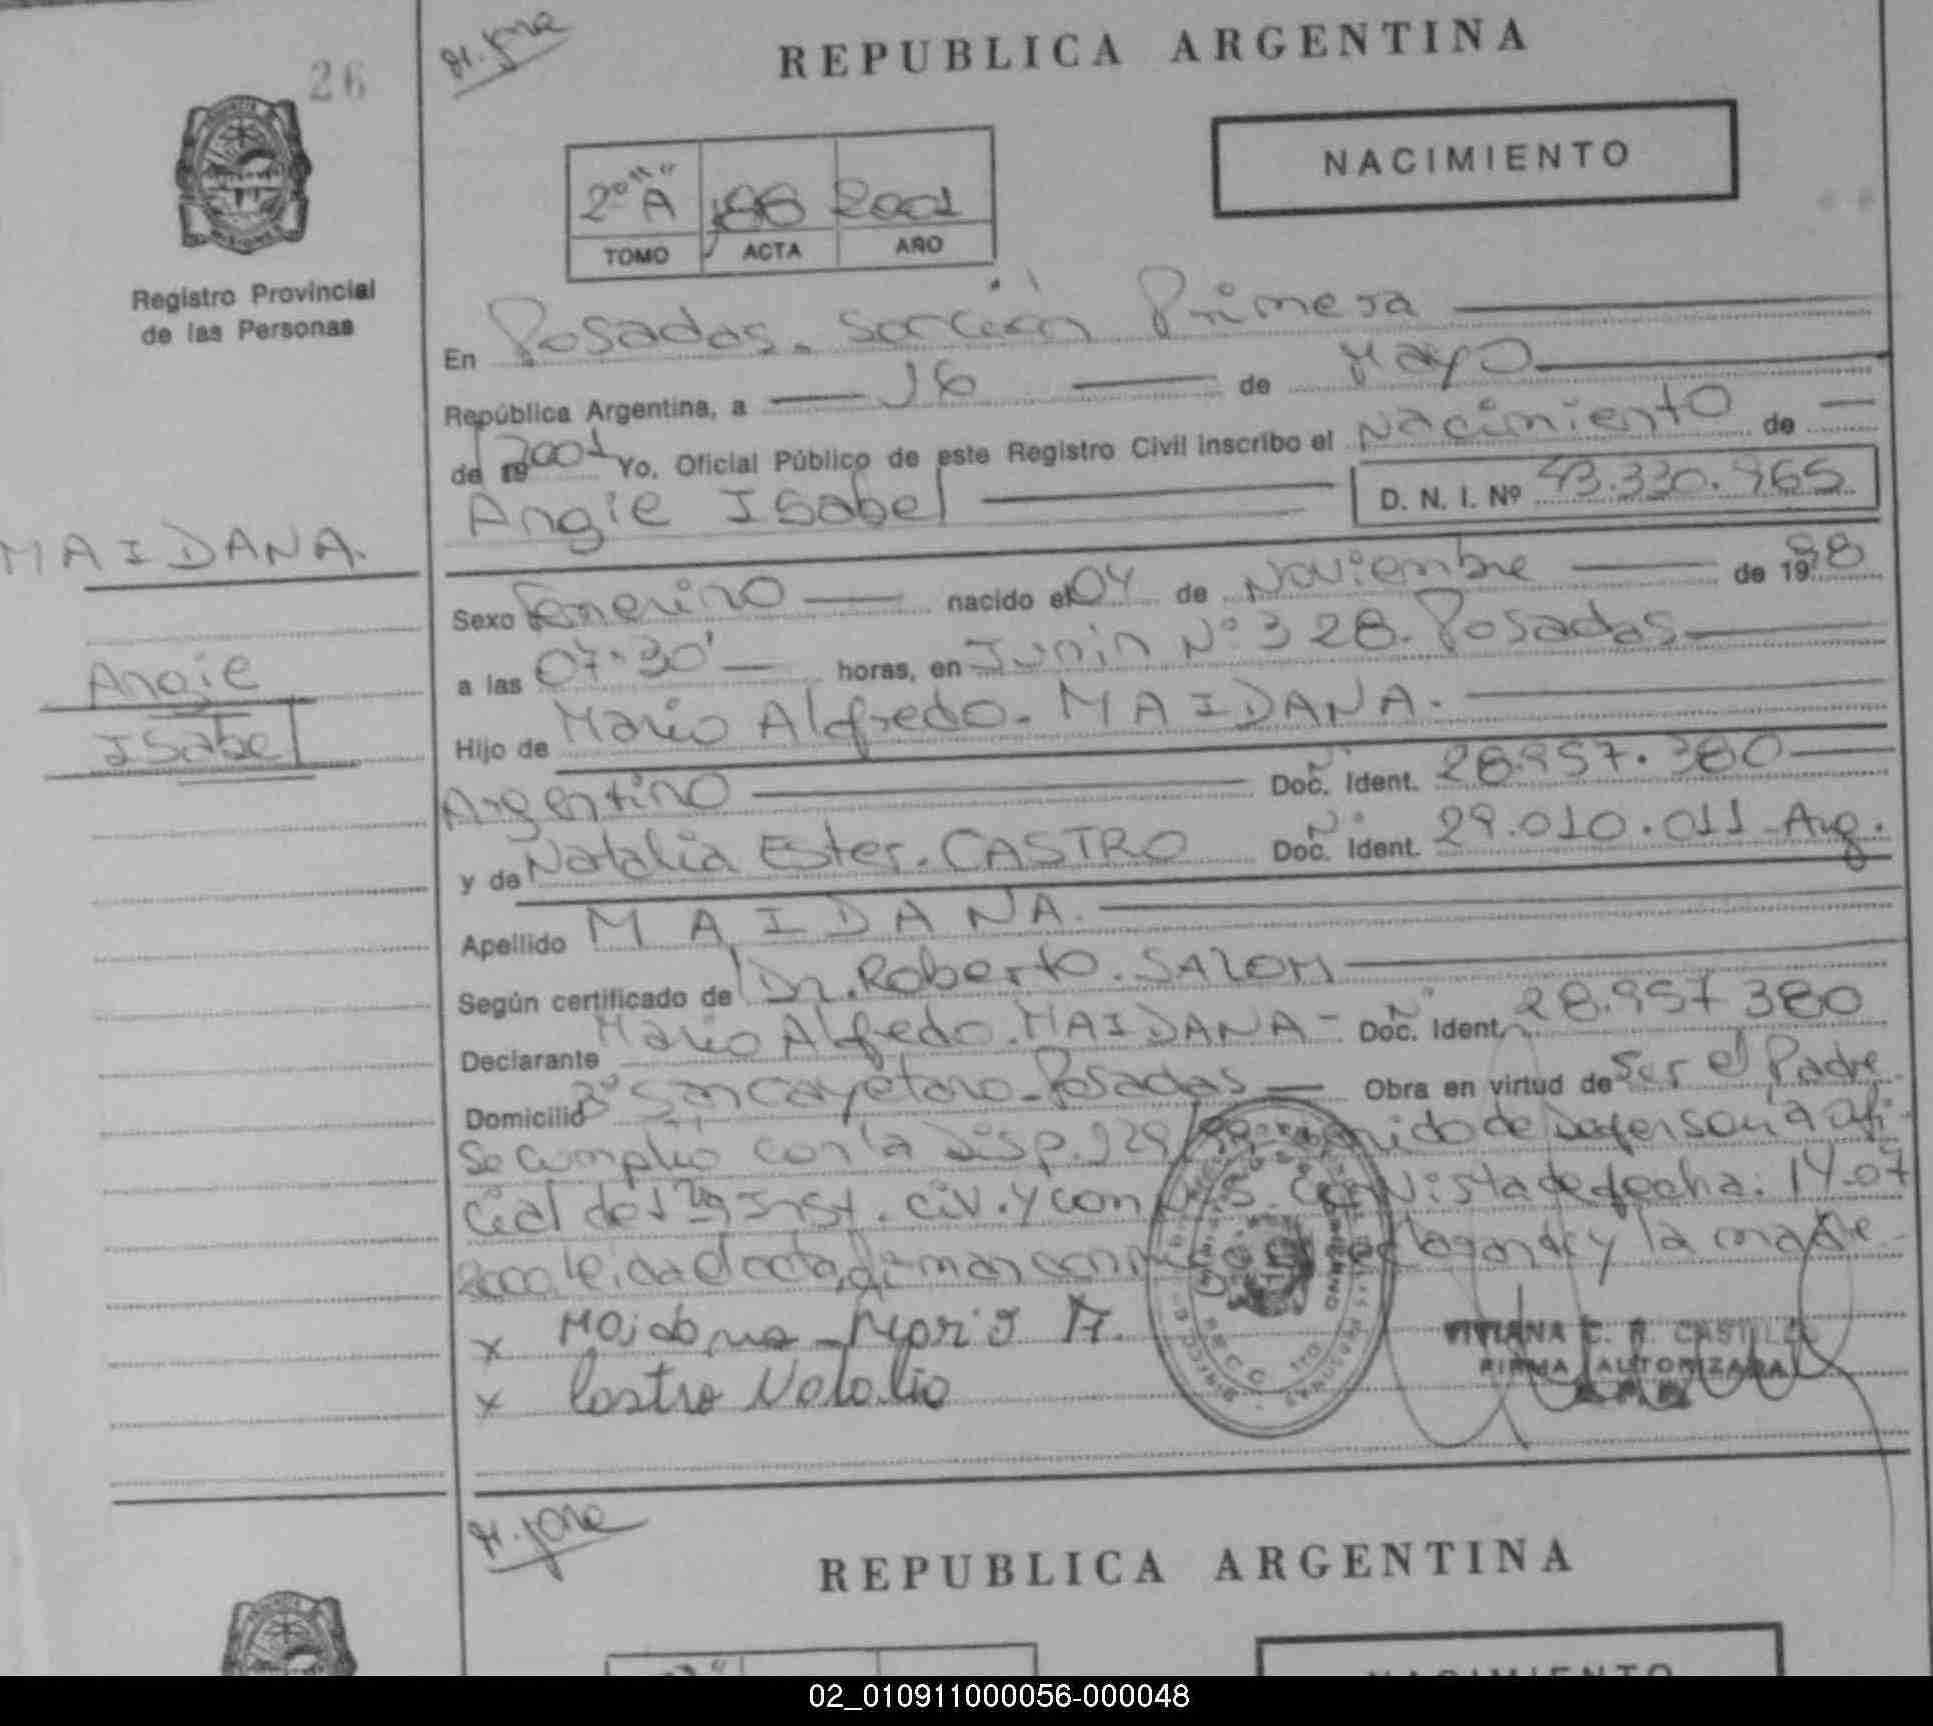 26
H. Jore
REPUBLICA ARGENTINA
NACIMIENTO
2º "A" 186 2001
TOMO ACTA AÑO
Registro Provincial
de las Personas
En Posadas. Sección Primera
República Argentina, a 16 de Mayo
de 19 2001 Yo. Oficial Público de este Registro Civil inscribo el Nacimiento de
Angie Isabel D. N. I. Nº 43.330.965
MAIDANA.
Angie
Isabel
Sexo Femenino nacido el 04 de Noviembre de 1998
a las 07.30' horas, en Junin Nº 328. Posadas
Hijo de Mario Alfredo. MAIDANA.
Argentino Doc. Ident. Nº 28.957.380
y de Natalia Ester. CASTRO Doc. Ident. Nº 29.010.011 Arg.
Apellido MAIDANA.
Según certificado de Dr. Roberto. SALOM
Declarante Mario Alfredo. MAIDANA - Doc. Ident. Nº 28.957 380
Domicilio Bº San Cayetano - Posadas Obra en virtud de Ser el Padre
Se cumplio con la Disp. 129 de Defensoria Ofi-
cial de 1ra Inst. Civ. y Com Con Vista de fecha: 14-07
2000 leida el acta, firman y la madre
x Maidana Mario A.
x Castro Natalia
VIVIANA C. R. CASTILLO
FIRMA AUTORIZADA
H. Jore
REPUBLICA ARGENTINA
NACIMIENTO
02_010911000056-000048